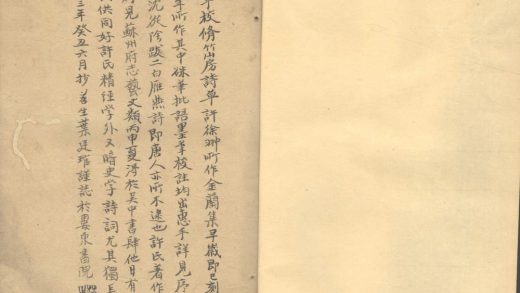 校脩竹山房詩草許徐翀所作金蘭集早歲即已刻
年所作其中硃筆批語墨筆校註均出惠手詳見序
沈陰跋二白雁燕詩即唐人亦所不逮也許氏著作
見蘇州府志藝文類丙申夏得於吳中書肆他日有
供同好許氏精經學外又史學詩詞尤其獨長
三年癸丑六月抄生葉廷琯謹誌於婁東書院